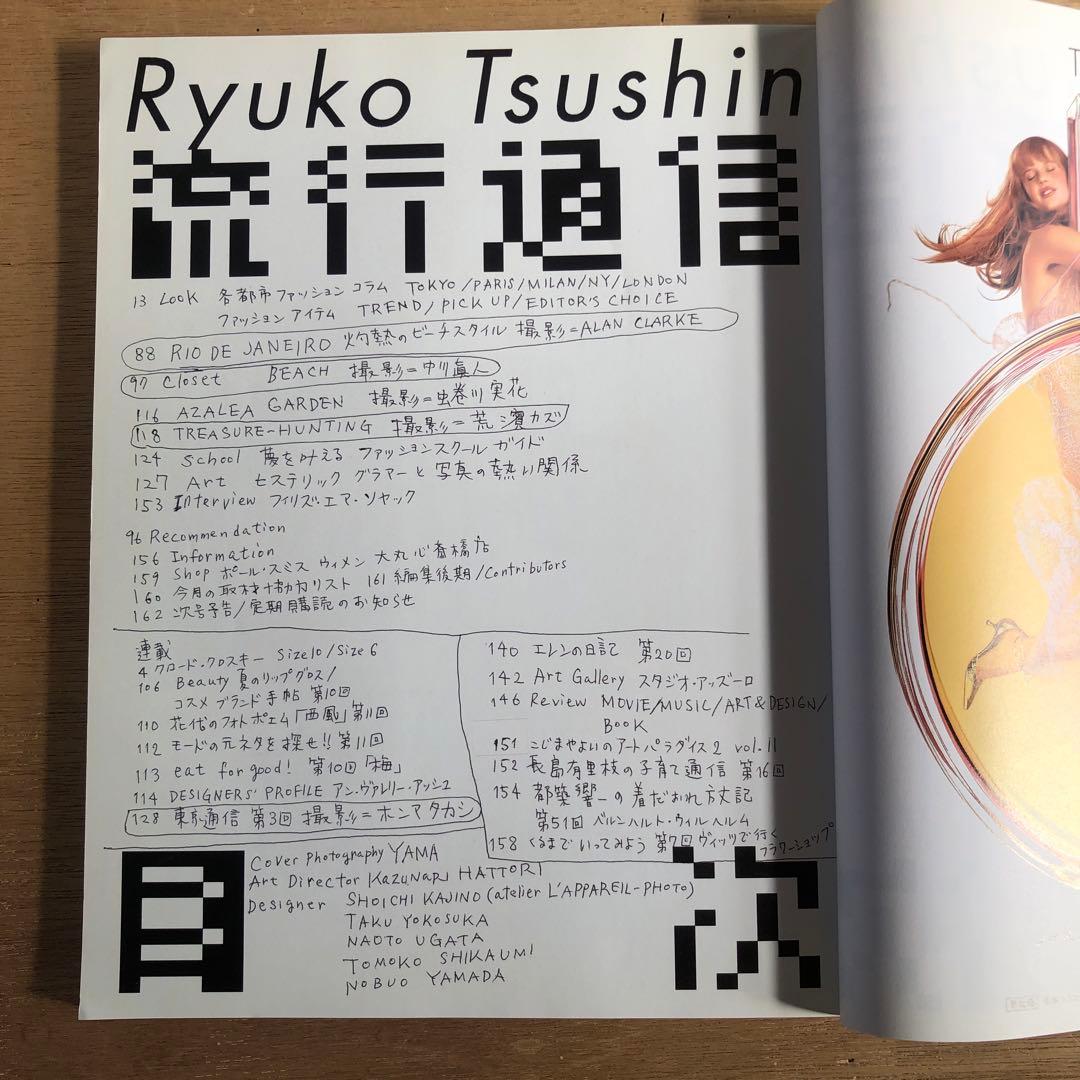 Ryuko Tsushin
流行通信
13 Look 各都市ファッションコラム TOKYO/PARIS/MILAN/NY/LONDON
ファッションアイテム TREND/PICK UP/EDITOR'S CHOICE
88 RIO DE JANEIRO 灼熱のビーチスタイル 撮影=ALAN CLARKE
97 Closet BEACH 撮影=中川眞人
116 AZALEA GARDEN 撮影=虫巻川実花
118 TREASURE-HUNTING 撮影=荒濱カズ
124 School 夢を叶えるファッションスクールガイド
127 Art ヒステリックグラマーと写真の熱い関係
153 Interview フィリズ・エア・ソヤック
96 Recommendation
156 Information
159 Shop ポール・スミス ウィメン 大丸心斎橋店
160 今月の取材協力リスト 161 編集後期/Contributors
162 次号予告/定期購読のお知らせ
連載
4 クロード・クロスキー Size10/Size6
106 Beauty 夏のリップグロス/
コスメブランド手帖 第10回
110 花代のフォトポエム「西風」第11回
112 モードの元ネタを探せ!! 第11回
113 eat for good! 第10回「梅」
114 DESIGNERS' PROFILE アン・ヴァレリー・アッシュ
128 東京通信 第3回 撮影=ホンマタカシ
140 エレンの日記 第20回
142 Art Gallery スタジオ・アッズーロ
146 Review MOVIE/MUSIC/ART&DESIGN/
BOOK
151 こじまやよいのアートパラダイス2 vol.11
152 長島有里枝の子育て通信 第16回
154 都築響一の着だおれ方丈記
第51回 ベルンハルト・ウィルヘルム
158 くるまでいってみよう 第7回 ヴィッツで行く
フラワーショップ
目次
Cover Photography YAMA
Art Director KAZUNARI HATTORI
Designer SHOICHI KAJINO (atelier L'APPAREIL-PHOTO)
TAKU YOKOSUKA
NAOTO UGATA
TOMOKO SHIKAUMI
NOBUO YAMADA